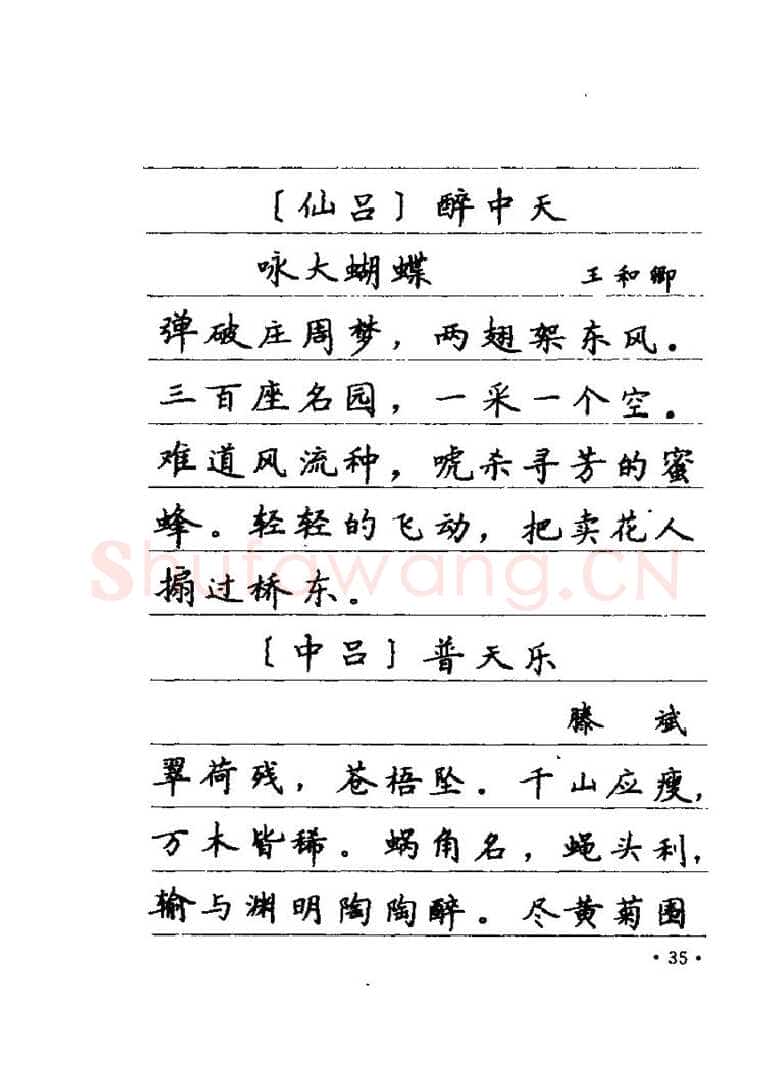 〔仙吕〕醉中天
咏大蝴蝶 王和卿
弹破庄周梦，两翅架东风。
三百座名园，一采一个空。
难道风流种，唬杀寻芳的蜜
蜂。轻轻的飞动，把卖花人
搧过桥东。
Shufawang.CN
〔中吕〕普天乐
滕 斌
翠荷残，苍梧坠。千山应瘦，
万木皆稀。蜗角名，蝇头利，
输与渊明陶陶醉。尽黄菊围
·35·